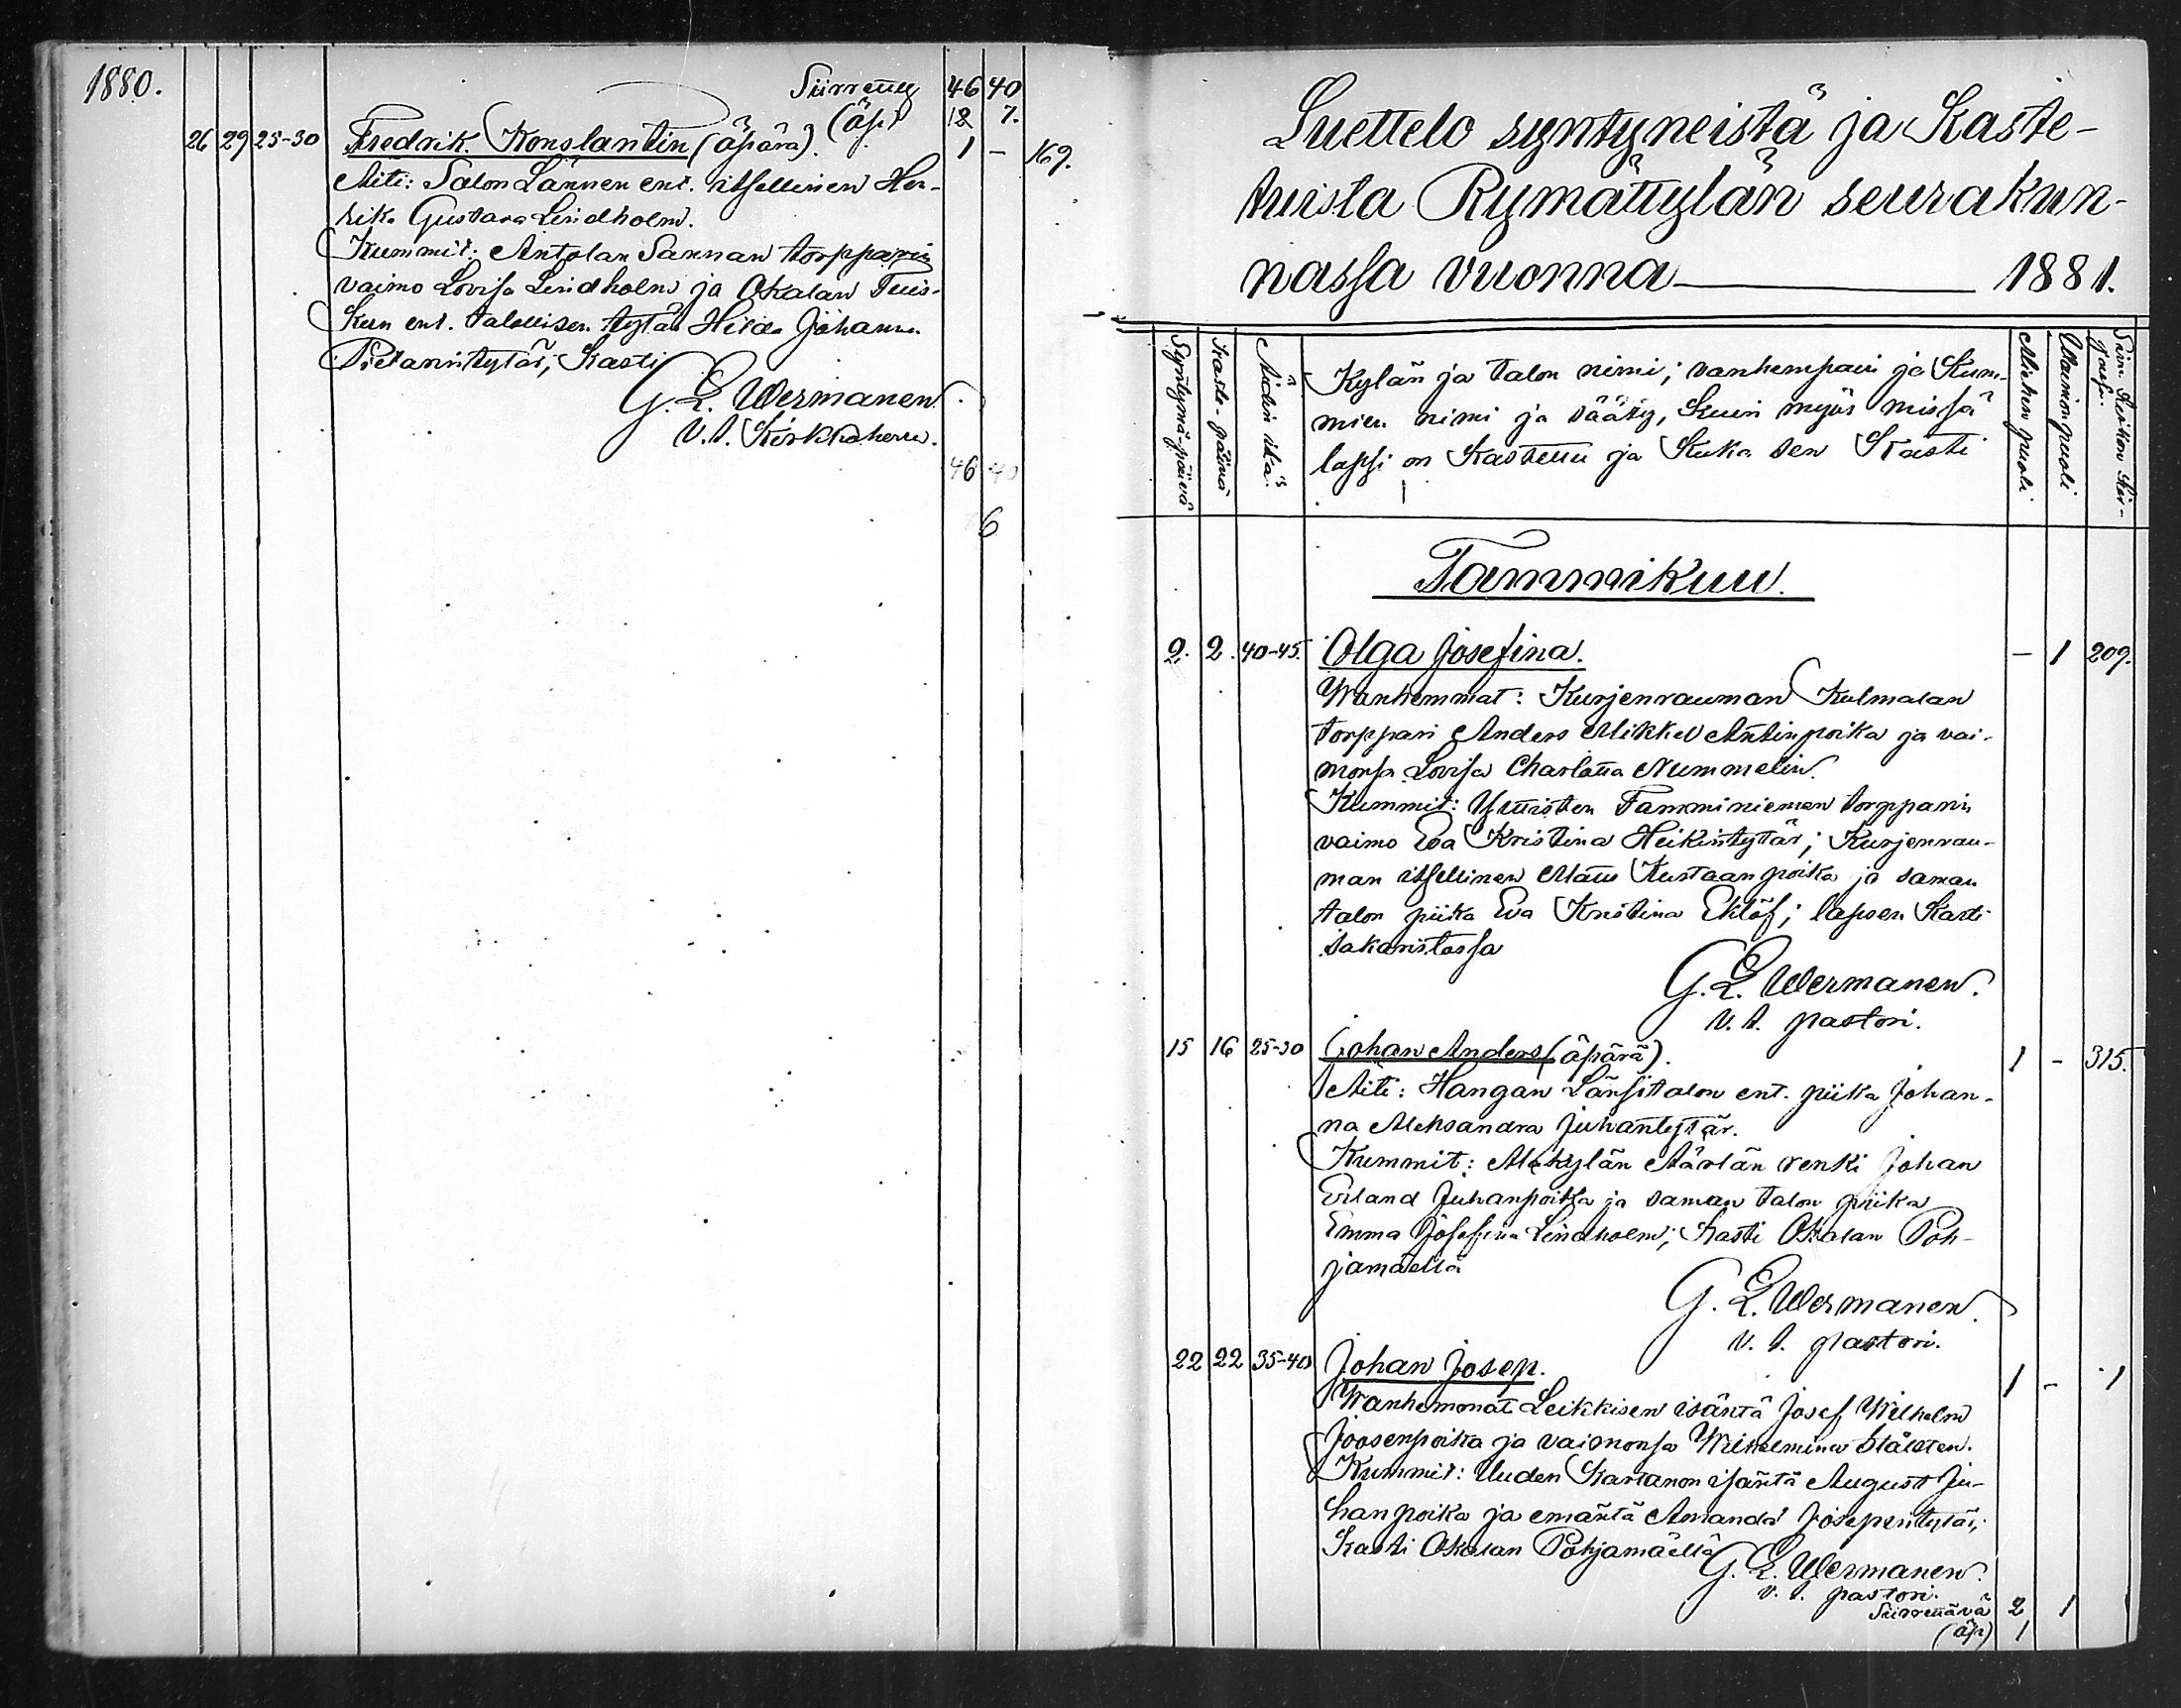 1880.
Siirretty 46 40
(äp.) 12 7.
26 29 25-30 Fredrik Konstantin (äpärä). 1 – 169.
Äiti: Salon Lännen ent. itsellinen Hen-
rika Gustava Lindholm.
Kummit: Antolan Sannan torpparin
vaimo Lovisa Lindholm ja Okalan Tuis-
kun ent. talollisen tytär Hilda Johanna
Kasti
G. E. Wermanen.
V. t. Kirkkoherra.
46 40
6
Luettelo syntyneistä ja Kaste-
tuista Rymättylän seurakun-
nassa vuonna 1881.
Syntymä-päivä
Kaste-päivä
Äidin ikä.
Kylän ja talon nimi; vanhempain ja Kum-
mien nimi ja sääty, kuin myös missä
lapsi on Kastettu ja Kuka sen Kasti
Miehenpuoli
Waimonpuoli
Tammikuu.
2. 2. 40-45. Olga Josefina. – 1 209.
Wanhemmat: Kurjenrauman Kulmalan
torppari Anders Mikkel Antinpoika ja vai-
monsa Lovisa Charlotta Nummelin.
Kummit: Tamminiemen torpparin
vaimo Eva Kristina Heikintytär; Kurjenrau-
man itsellinen Matti Kustaanpoika ja saman
talon piika Eva Kristina Eklöf; lapsen Kasti
sakaristossa
G. E. Wermanen.
v. t. pastori.
15 16 25-30 Johan Anders (äpärä). 1 – 315.
Äiti: Hangan Länsitalon ent. piika Johan-
na Aleksandra Juhantytär.
Kummit: Alakylän Äärlän renki Johan
Erland Juhanpoika ja saman talon piika
Emma Josefina Lindholm; Kasti Okalan Poh-
jamäellä
G. E. Wermanen.
v. t. pastori.
22 22 35-40 Johan Josep. 1 – 1
Wanhemmat Leikkisen isäntä Josef Wilhelm
Joosenpoika ja vaimonsa Wilhelmina Stålsten.
Kummit: Uuden Kartanon isäntä August Ju-
hanpoika ja emäntä Amanda Josepintytär;
Kasti Okalan Pohjamäellä
G. E. Wermanen.
v. t. pastori.
Siirrettävä 2 1
(äp) 1